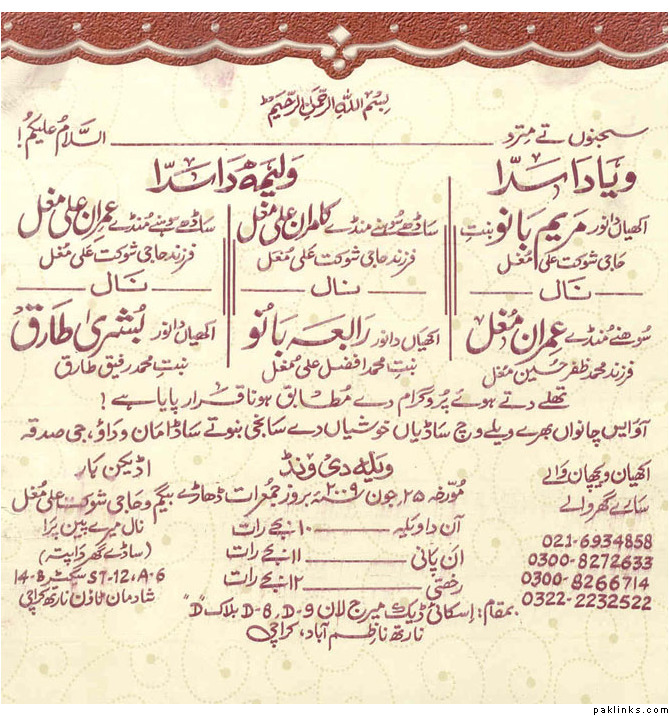 بِسْمِ اللهِ الرَّحْمٰنِ الرَّحِيْمِ
سجنوں تے مترو ـــــــــ السَّلامُ عَلَيْكُمْ!
ویاہ دا سدّا
اکھیاں دا نور مریم بانو بنتِ
حاجی شوکت علی مغل
نال
سوہنے مُنڈے عمران مغل
فرزند محمد ظفر حسین مغل
ولیمہ دا سدّا
ساڈھے سوہنے منڈے کامران علی مغل
فرزند حاجی شوکت علی مغل
نال
اکھیاں دا نور رابعہ بانو
بنتِ محمد افضل علی مغل
ساڈھے سوہنے مُنڈے عمران علی مغل
فرزند حاجی شوکت علی مغل
نال
اکھیاں دا نور بُشریٰ طارق
بنتِ محمد رفیق طارق
تھلے دتے ہوئے پروگرام دے مُطابق ہونا قرار پایا ہے!
آؤ ایس چانواں بھرے ویلے وچ ساڈیاں خوشیاں دے سانجی بنو تے ساڈا مان ودّاؤ، جی صدقہ
اکھیاں وچھان والے
سارے گھر والے
021-6934858
0300-8272633
0300-8266714
0322-2232522
ویلہ دی ونڈ
مورخہ ۲۵ جون ۲۰۰۹ء بروز جمعرات دھاڑے
آن دا ویلہ ــــــ ۱۰ بجے رات
ان پانی ــــــ ۱۱ بجے رات
رخصتی ــــــ ۱۲ بجے رات
بمقام: اسکائی ڈیک میرج لان D-9، D-8 بلاک "D"
نارتھ ناظم آباد، کراچی
اڈیکن ہار
بیگم و حاجی شوکت علی مغل
نال میرے پین پرا
(ساڈے گھر دا پتہ)
ST-12، A-6 سیکٹر 14-B
شادمان ٹاؤن نارتھ کراچی
paklinks.com